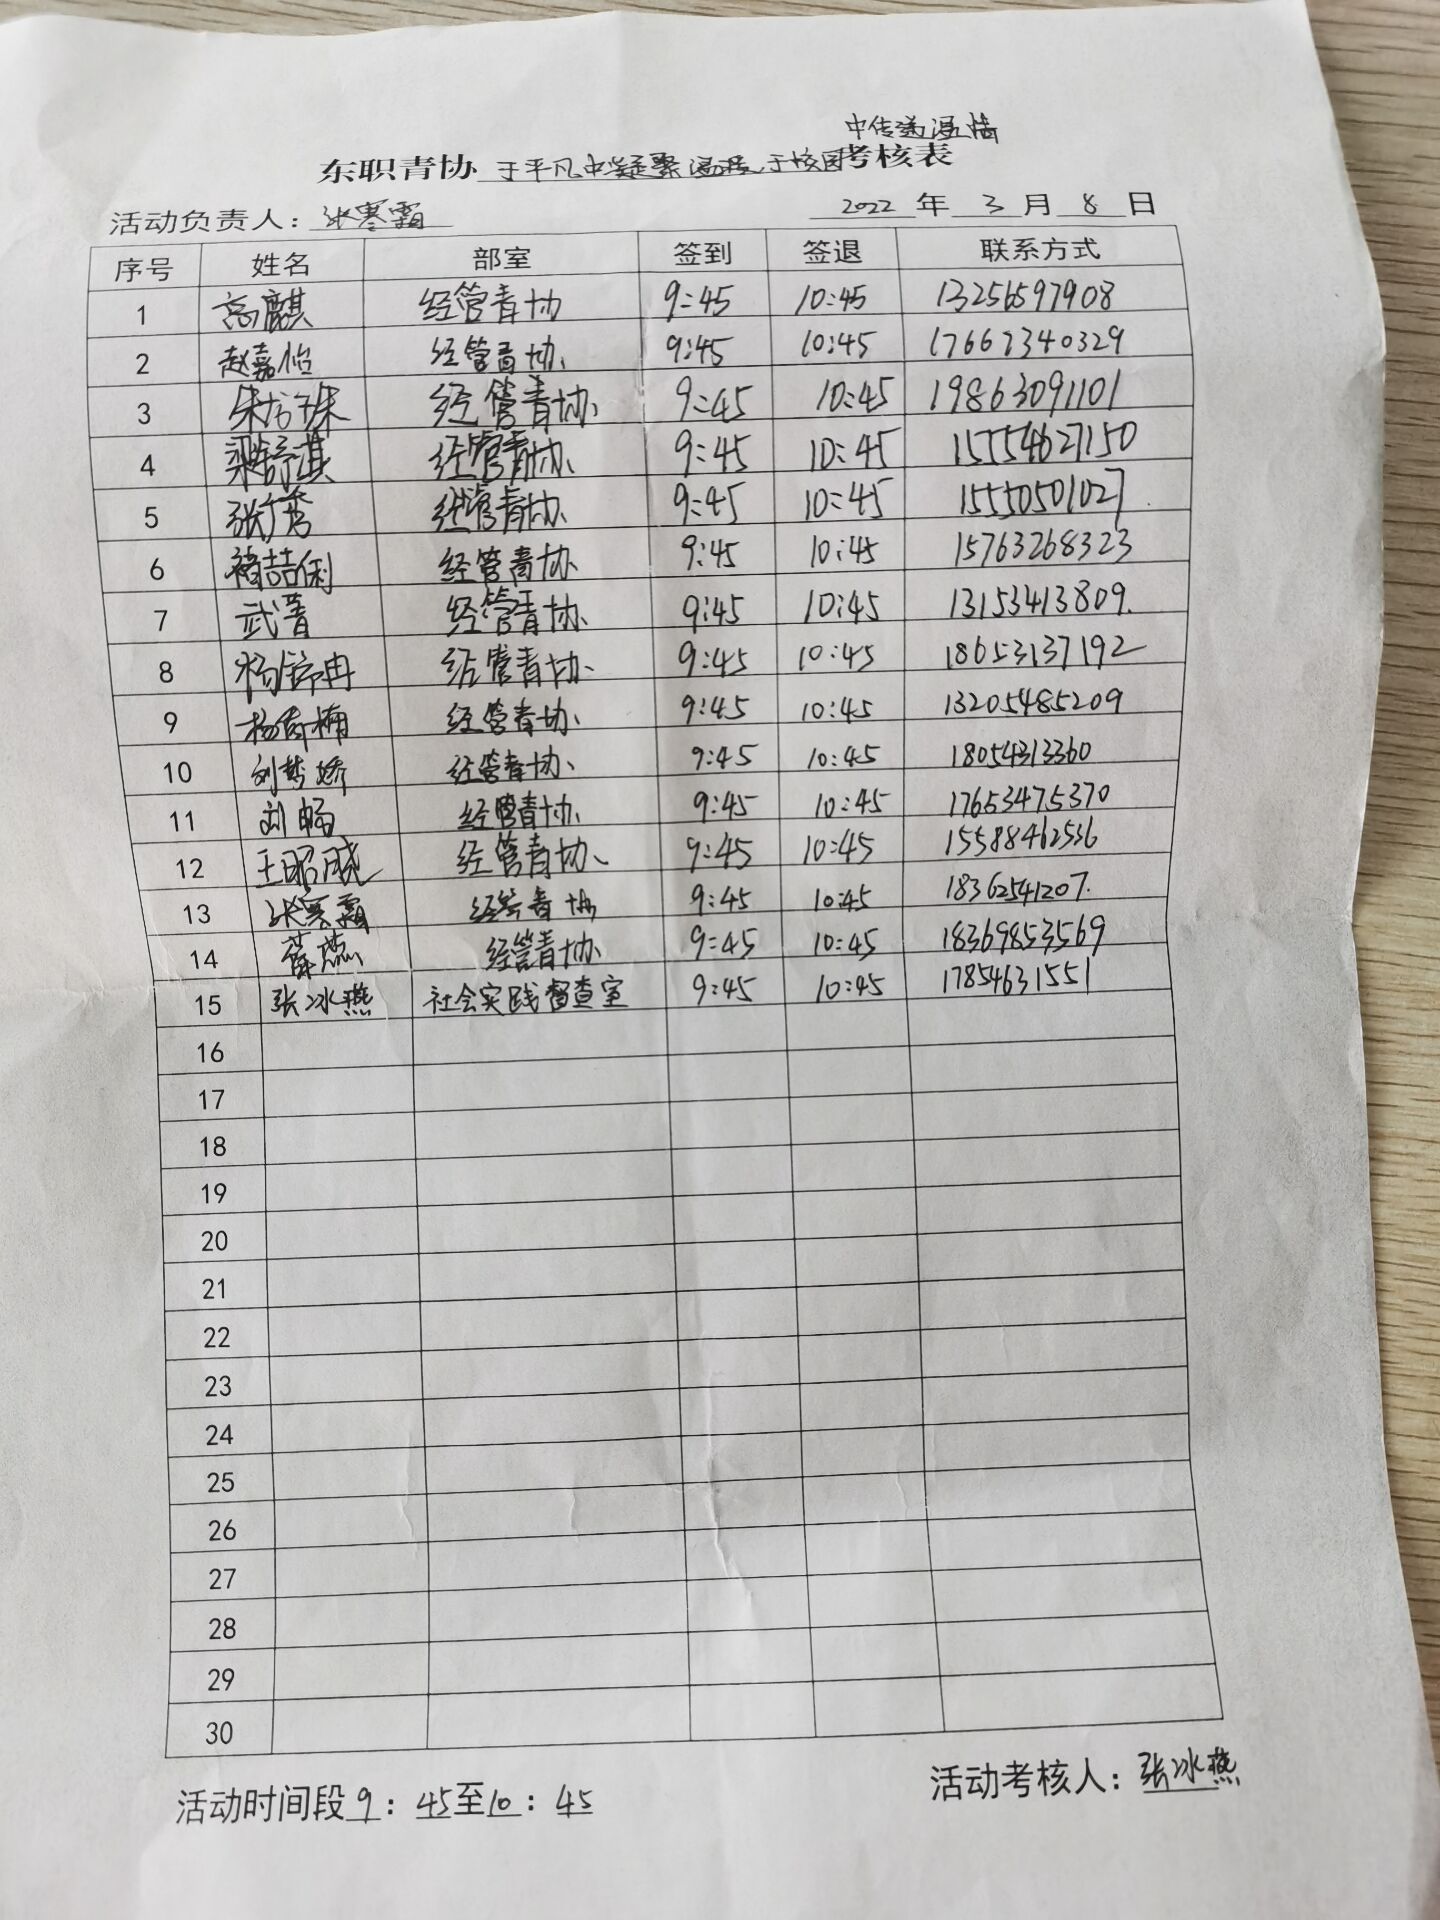 中传递温情
东职青协 于平凡中凝聚温程,于校园 考核表
活动负责人: 张寒霜 2022 年 3 月 8 日
序号 姓名 部室 签到 签退 联系方式
1 高麒 经管青协 9:45 10:45 13256597908
2 赵嘉怡 经管青协 9:45 10:45 17662340329
3 经管青协 9:45 10:45 19863091101
4 梁舒淇 经管青协 9:45 10:45 15554627150
5 经管青协 9:45 10:45 15550501027
6 褚喆俐 经管青协 9:45 10:45 15763268323
7 武菁 经管青协 9:45 10:45 13153413809
8 经管青协 9:45 10:45 18653137192
9 经管青协 9:45 10:45 13205485209
10 刘梦娇 经管青协 9:45 10:45 18054313360
11 刘畅 经管青协 9:45 10:45 17653475370
12 王昭晓 经管青协 9:45 10:45 15588462536
13 张寒霜 经管青协 9:45 10:45 18362541207
14 薛燕 经管青协 9:45 10:45 18369853569
15 张冰燕 社会实践督查室 9:45 10:45 17854631551
16
17
18
19
20
21
22
23
24
25
26
27
28
29
30
活动时间段 9: 45至10: 45 活动考核人: 张冰燕